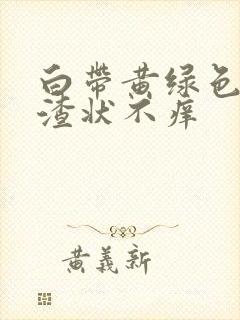 白带黄绿色
渣状不痒
黄義新